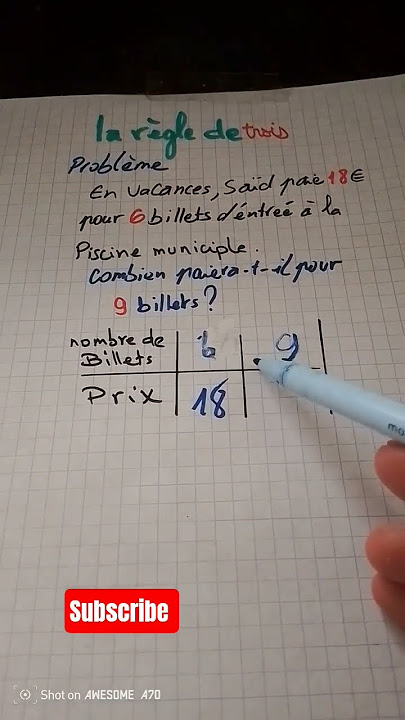 la règle de trois
Problème
En vacances, Saïd paie 18€
pour 6 billets d'éntreé à la
Piscine municiple.
Combien paiera-t-il pour
9 billets?
nombre de Billets 6 9
Prix 18
Subscribe
Shot on AWESOME A70